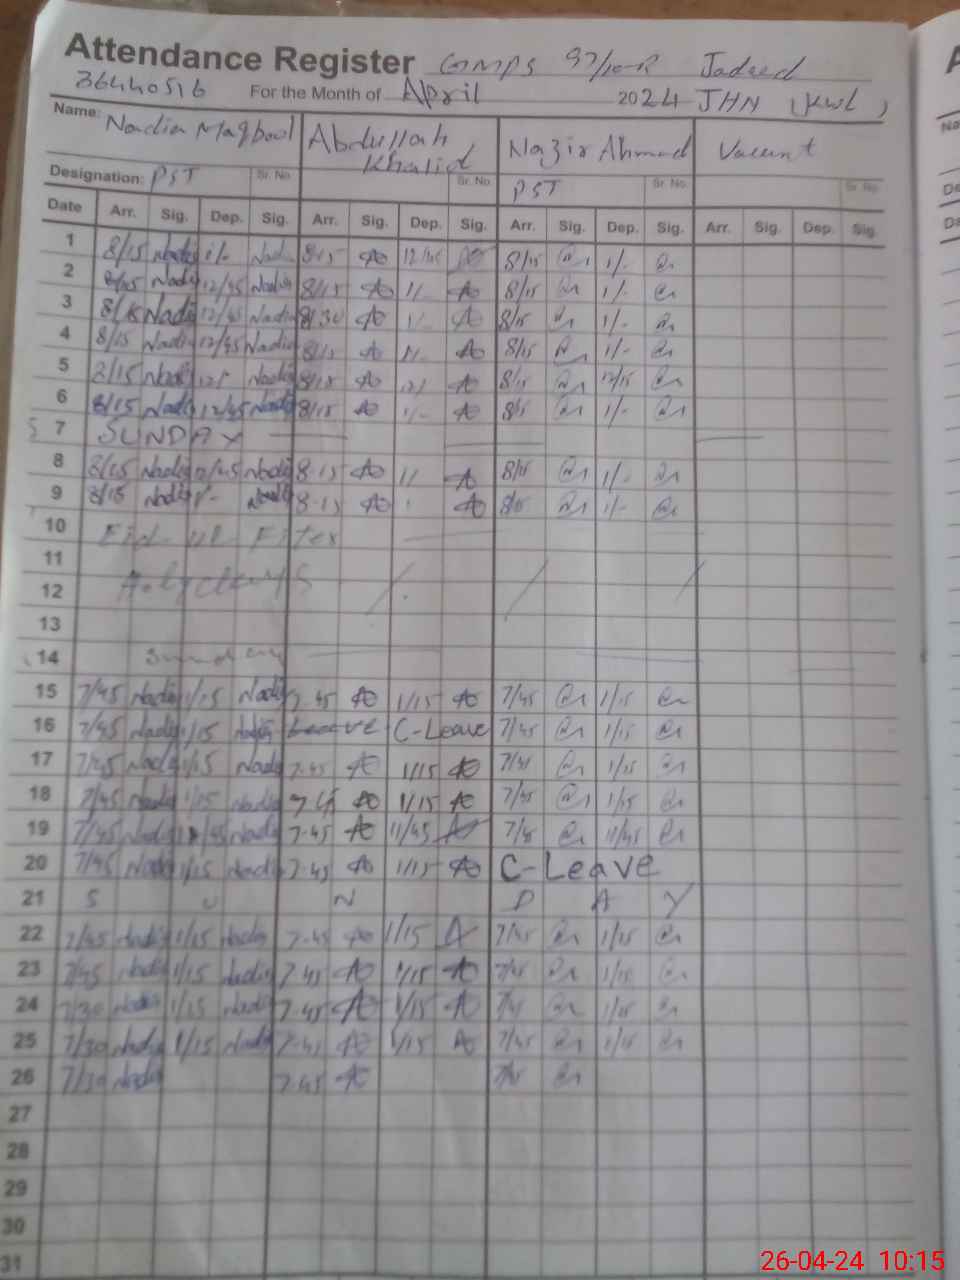 Attendance Register GMPS 97/10-R Jadeed
36440516 For the Month of April 2024 JHN (KWL)
Name: Nadia Maqbool Abdullah Khalid Nazir Ahmad Vacant
Designation: PST Sr. No. Sr. No. PST Sr. No. Sr. No.
Date Arr. Sig. Dep. Sig. Arr. Sig. Dep. Sig. Arr. Sig. Dep. Sig. Arr. Sig. Dep. Sig.
1 8/15 Nadia 1/- Nadia 8-15 12/45 8/15 1/-
2 8/15 Nadia 12/45 Nadia 8/15 1/- 8/15 1/-
3 8/15 Nadia 12/45 Nadia 8/30 1/- 8/15 1/-
4 8/15 Nadia 12/45 Nadia 8/15 1/- 8/15 1/-
5 8/15 Nadia 12/ Nadia 8/15 12/ 8/15 12/15
6 8/15 Nadia 12/45 Nadia 8/15 1/- 8/15 1/-
7 SUNDAY
8 8/15 Nadia 12/45 Nadia 8-15 1/ 8/15 1/-
9 8/15 Nadia 1/- Nadia 8-15 8/15 1/-
10 Eid ul Fiter
11
12 Holydays
13
14 Sunday
15 7/45 Nadia 1/15 Nadia 7-45 1/15 7/45 1/15
16 7/45 Nadia 1/15 Nadia Leave C-Leave 7/45 1/15
17 7/45 Nadia 1/15 Nadia 7-45 1/15 7/45 1/15
18 7/45 Nadia 1/15 Nadia 7-45 1/15 7/45 1/15
19 7/45 Nadia 11/45 Nadia 7-45 11/45 7/45 11/45
20 7/45 Nadia 1/15 Nadia 7-45 1/15 C-Leave
21 S U N D A Y
22 7/45 Nadia 1/15 Nadia 7-45 1/15 7/45 1/15
23 7/45 Nadia 1/15 Nadia 7-45 1/15 7/45 1/15
24 7/30 Nadia 1/15 Nadia 7-45 1/15 7/45 1/15
25 7/30 Nadia 1/15 Nadia 7-45 1/15 7/45 1/15
26 7/30 Nadia 7-45 7/45
27
28
29
30
31
26-04-24 10:15